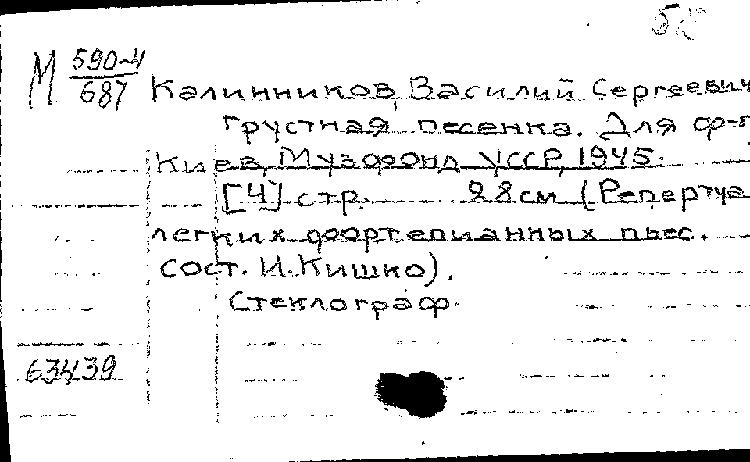 М 590-4/687
Калинников, Василий Сергеевич
Грустная песенка. Для ф-п
Киев, Музфонд УССР, 1945.
[4] стр. 28см (Репертуа
легких фортепианных пьес.
Сост. И. Кишко).
Стеклограф.
63439